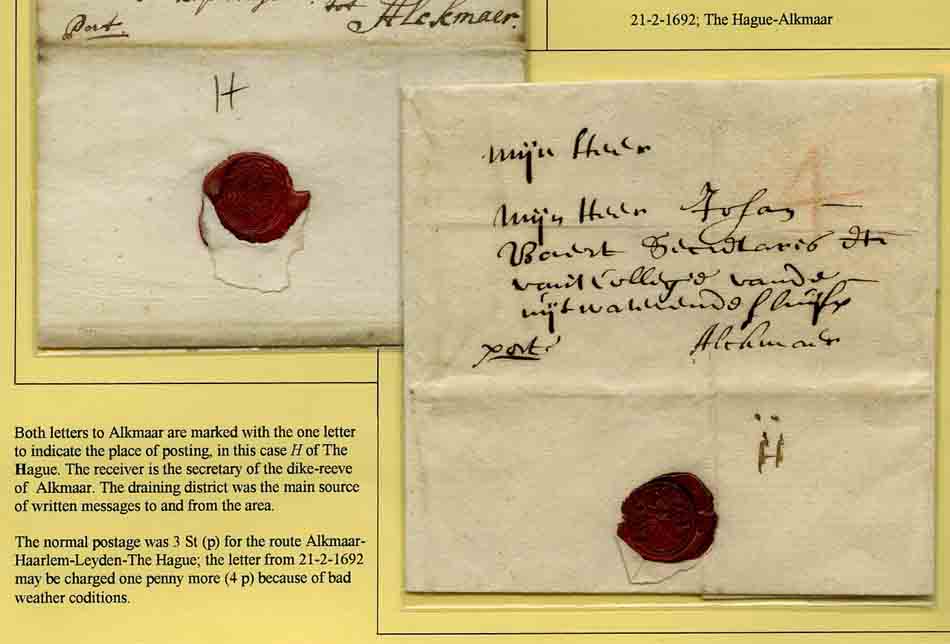 tot
Alckmaer.
Port.
H
21-2-1692; The Hague-Alkmaar
Mijn Heer
Mijn Heer Johan
Baert Secretaris
vant Collegie vande
uijtwaterende sluijse
port Alckmaer
4
H
Both letters to Alkmaar are marked with the one letter
to indicate the place of posting, in this case H of The
Hague. The receiver is the secretary of the dike-reeve
of Alkmaar. The draining district was the main source
of written messages to and from the area.
The normal postage was 3 St (p) for the route Alkmaar-
Haarlem-Leyden-The Hague; the letter from 21-2-1692
may be charged one penny more (4 p) because of bad
weather coditions.